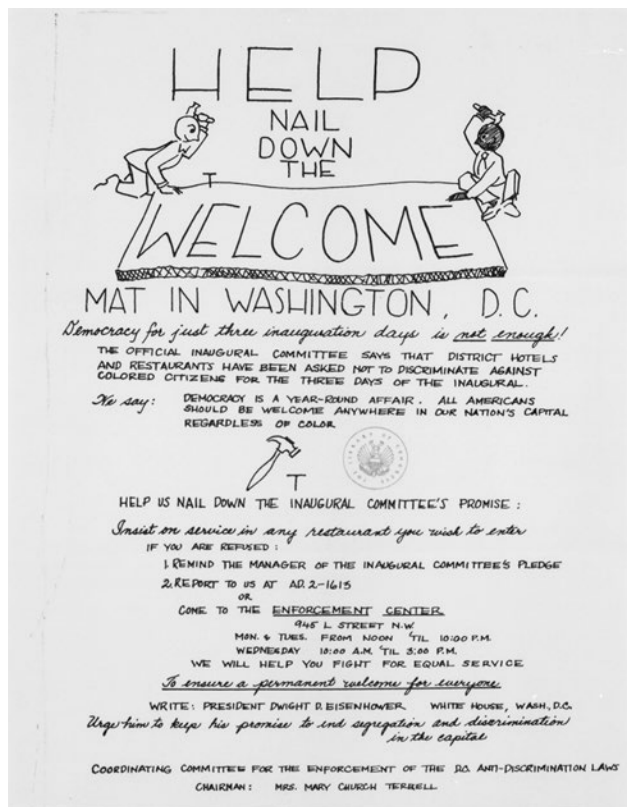 HELP
NAIL
DOWN
THE
WELCOME
MAT IN WASHINGTON, D.C.
Democracy for just three inauguration days is not enough!
THE OFFICIAL INAUGURAL COMMITTEE SAYS THAT DISTRICT HOTELS
AND RESTAURANTS HAVE BEEN ASKED NOT TO DISCRIMINATE AGAINST
COLORED CITIZENS FOR THE THREE DAYS OF THE INAUGURAL.
We say: DEMOCRACY IS A YEAR-ROUND AFFAIR. ALL AMERICANS
SHOULD BE WELCOME ANYWHERE IN OUR NATION'S CAPITAL
REGARDLESS OF COLOR
THE LIBRARY OF CONGRESS
HELP US NAIL DOWN THE INAUGURAL COMMITTEE'S PROMISE:
Insist on service in any restaurant you wish to enter
IF YOU ARE REFUSED:
1. REMIND THE MANAGER OF THE INAUGURAL COMMITTEE'S PLEDGE
2. REPORT TO US AT AD. 2-1615
OR
COME TO THE ENFORCEMENT CENTER
945 L STREET N.W.
MON. & TUES. FROM NOON 'TIL 10:00 P.M.
WEDNESDAY 10:00 A.M. 'TIL 3:00 P.M.
WE WILL HELP YOU FIGHT FOR EQUAL SERVICE
To ensure a permanent welcome for everyone
WRITE: PRESIDENT DWIGHT D. EISENHOWER WHITE HOUSE, WASH., D.C.
Urge him to keep his promise to end segregation and discrimination
in the capital
COORDINATING COMMITTEE FOR THE ENFORCEMENT OF THE D.C. ANTI-DISCRIMINATION LAWS
CHAIRMAN: MRS. MARY CHURCH TERRELL